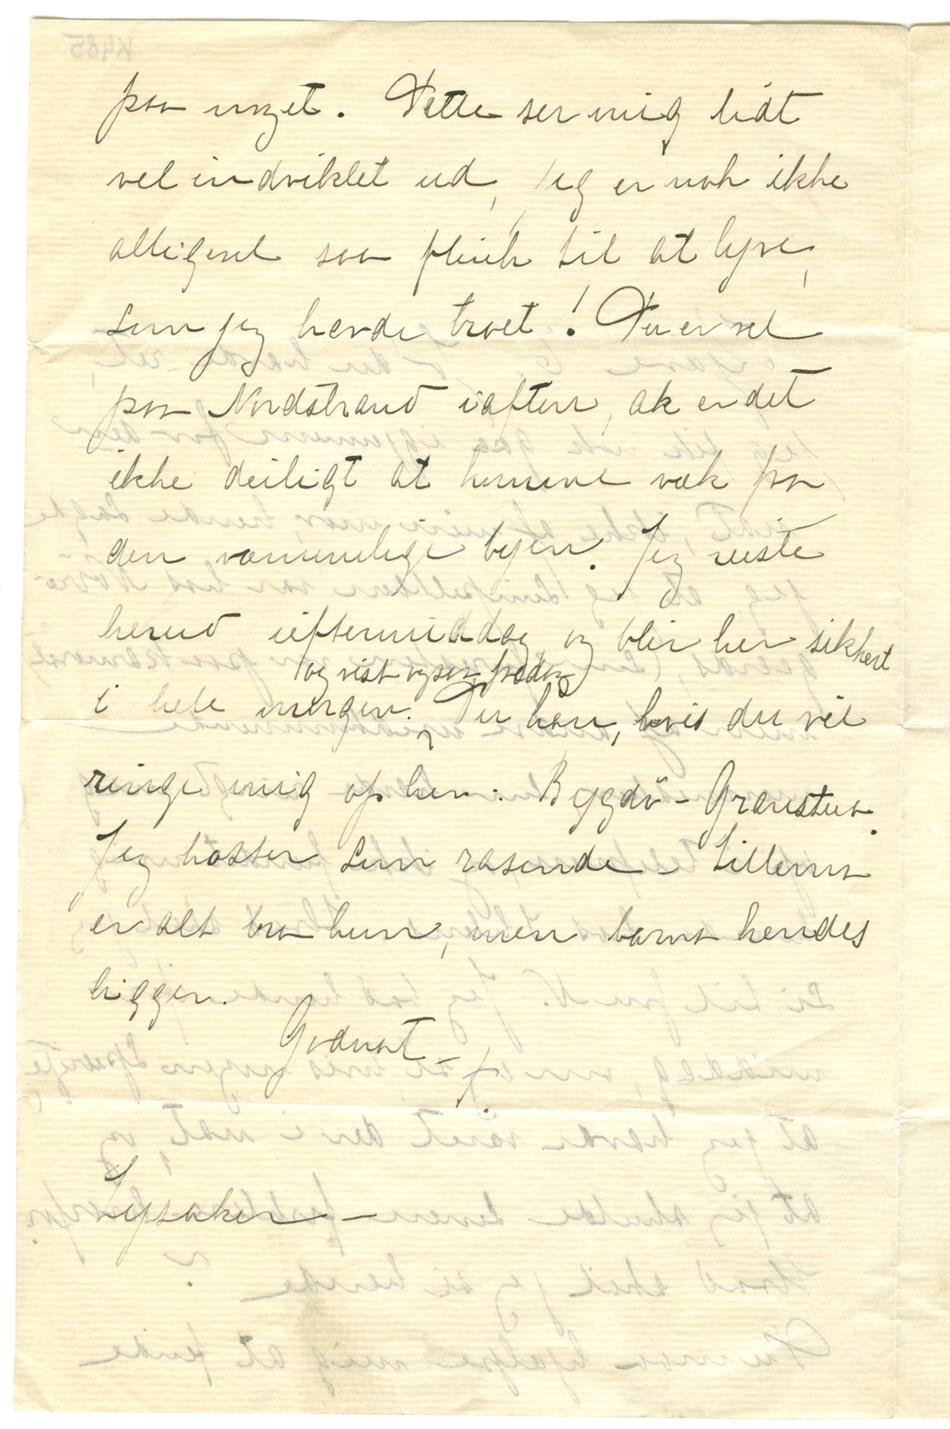 paa noget. Dette ser mig lidt
vel indviklet ud, jeg er nok ikke
alligevel saa flink til at lyve,
som jeg havde troet! Du er vel
paa Nordstrand iaften, ak er det
ikke deiligt at komme væk fra
den vemmelige byen. Jeg reiste
herud ieftermiddag og blir her sikkert
og vist ogsaa fredag
i hele morgen. Du kan, hvis du vil
ringe mig op her: Bygdö - Grænstua.
Jeg hoster som rasende - Tillema
er alt bra hun, men barnet hendes
ligger.
Godnat -
Lysaker -